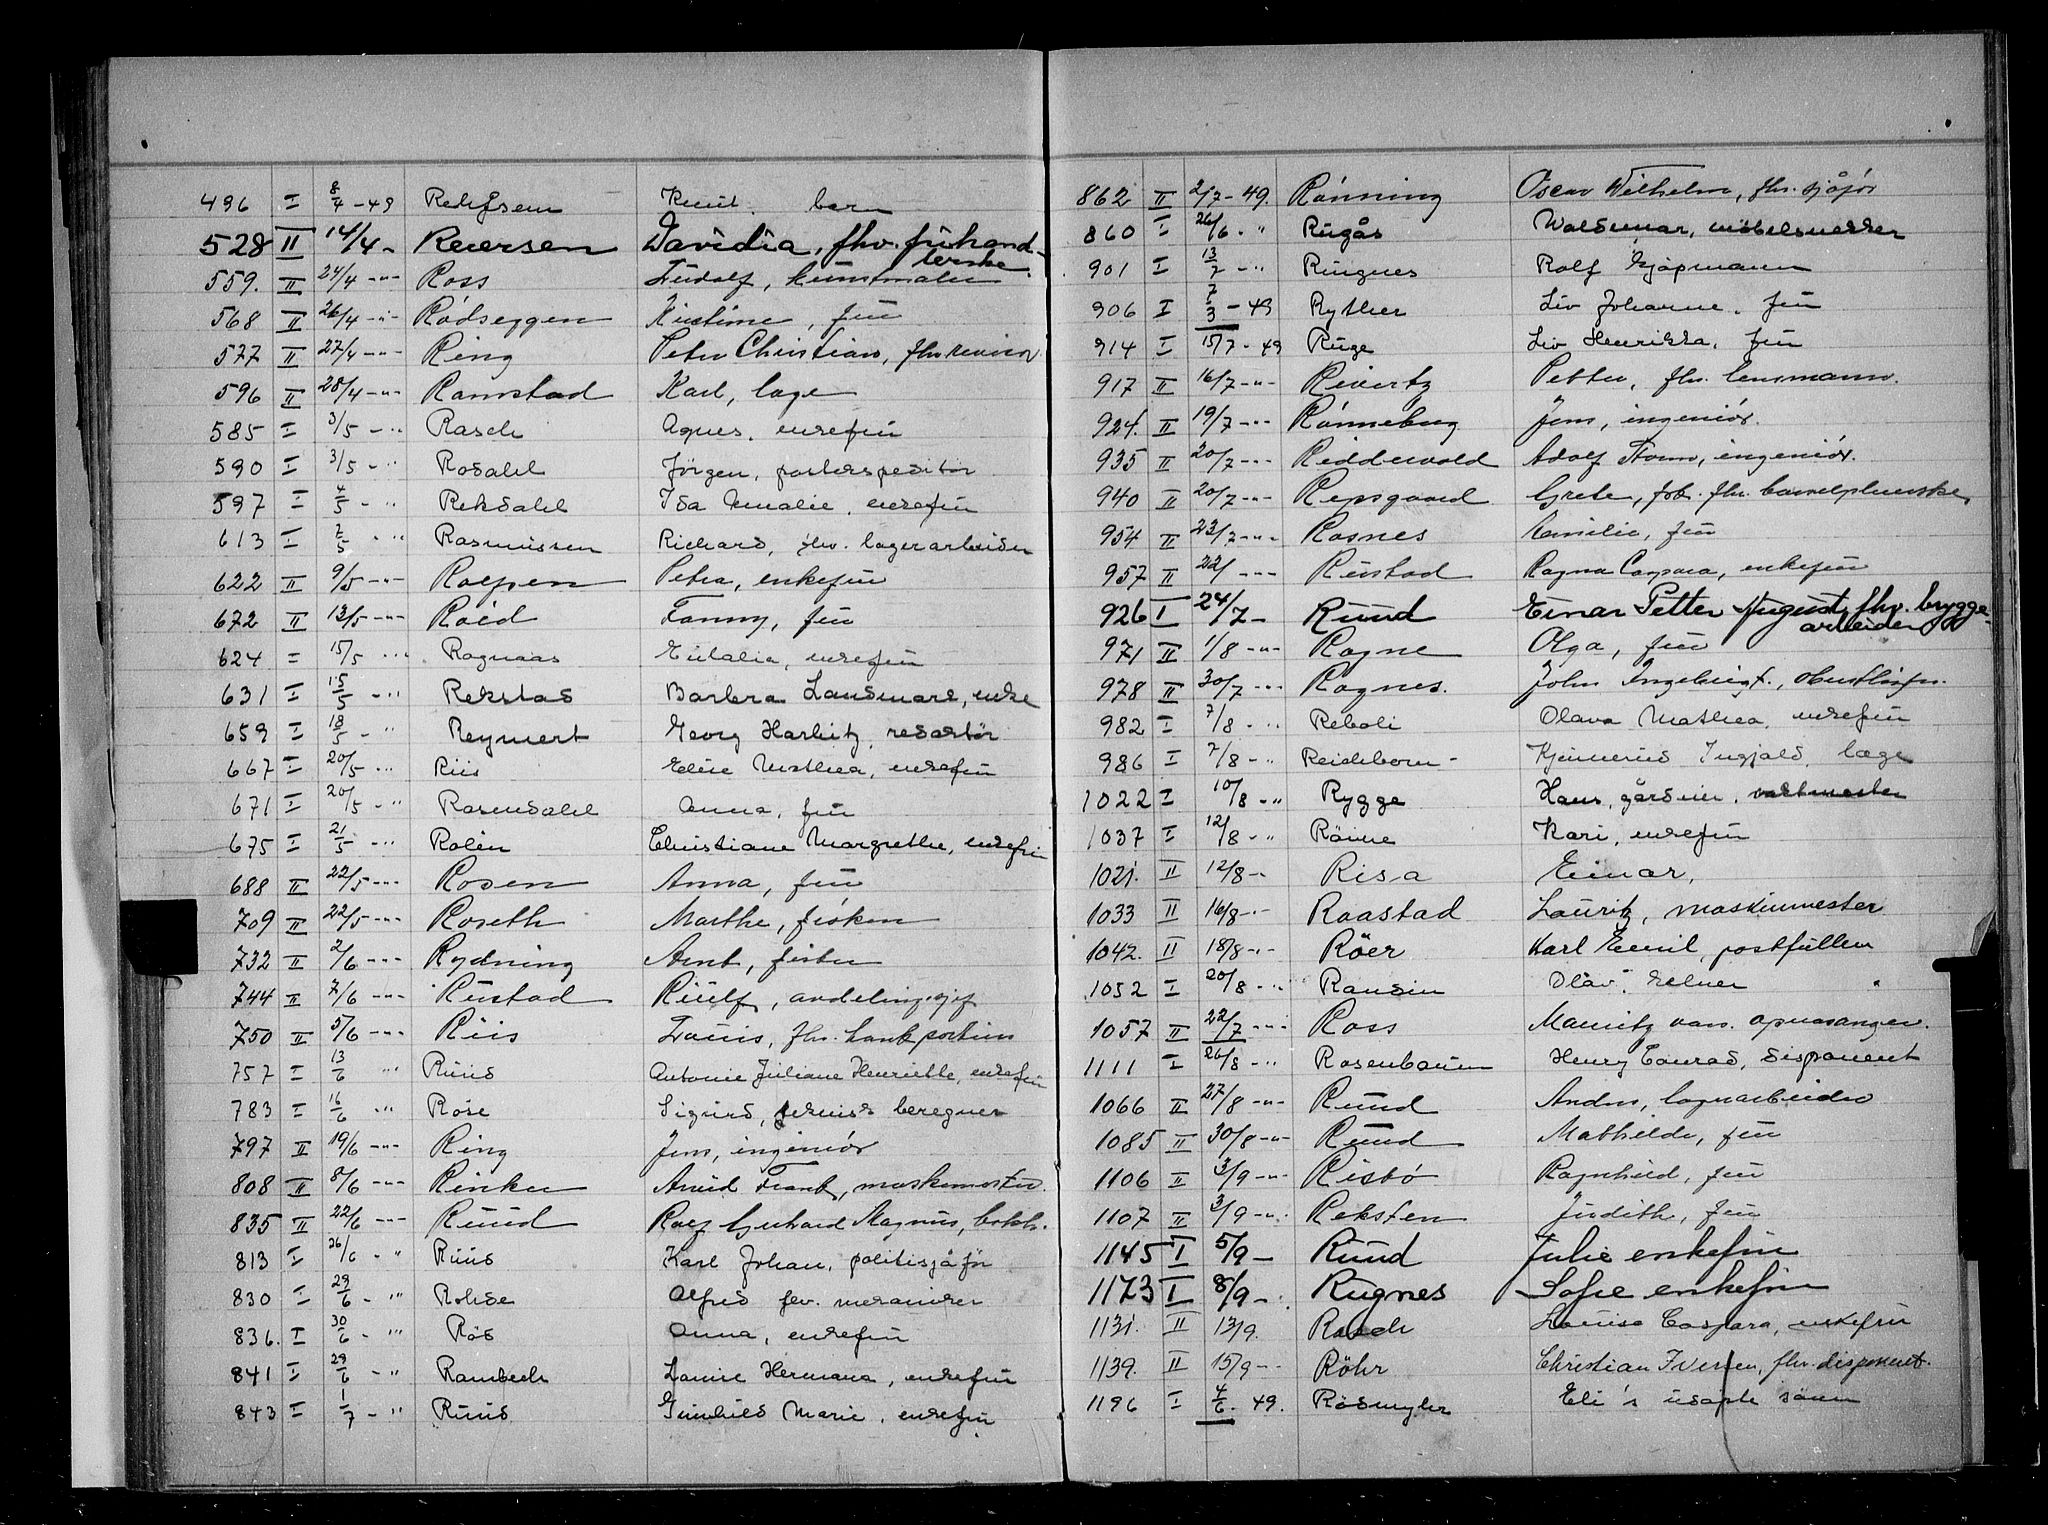 496 I 8/4 - 49 Knut. barn
528 II 14/4 - Reiersen Davidia, fhv. frihand-
lerske.
559. II 24/4 -"- Ross Ludolf, kunstmaler
568 II 26/4 -"- Rødseggen Kirstine, fru
577 II 27/4 -"- Ring Peter Christian, fhv revisor
596 II 28/4 -"- Ramstad Karl, lage
585 I 3/5 - " Rasch Agnes, enkefru
590 I 3/5 - " Rosdahl Jörgen, postekspeditör
597 I 4/5 - " Rekdahl Ida Amalie, enkefru
613 I 7/5 " Rasmussen Richard, fhv. lagerarbeider
622 II 9/5 -"- Petra, enkefru
672 II 13/5 -"- Røed Fanny, fru
624 I 15/5 " Ragnaas Eulalia, enkefru
631 I 15/5 - " Rekstad Barbra Landmark, enke
659 I 18/5 - " Reymert Georg Harbitz, redaktör
667 I 20/5 " Riis Mathea, enkefru
671 I 20/5 - " Rosendahl Anna, fru
675 I 21/5 " Rolén Christiane Margrethe, enkefru
688 II 22/5 -"- Rosen Anna, fru
709 II 22/5 -"- Roseth Marthe, frøken
732 II 2/6 -"- Rydning Arnt,
744 II 7/6 -"- Rustad avdelingssjef
750 II 5/6 -"- Riis Louis, fhv. bankportier
757 I 13/6 " Ruud Antonie Juliane Henriette, enkefru
783 I 16/6 " Röse Sigurd, teknisk beregner
797 II 19/6 -"- Ring Jens, ingeniør
808 II 8/6 -"- Rinker Arvid Frank, maskinmester.
835 II 22/6 -"- Ruud Rolf Gerhard Magnus, boktr.
813 I 26/6 - " Ruud Karl Johan, politisjåför
830 I 29/6 - " Rohde Alfred fhv. mekaniker
836. I 30/6 - " Röd Anna, enkefru
841 I 29/6 - " Rambech Hermana, enkefru
843 I 1/7 - " Ruud Gunhild Marie, enkefru
862 II 2/7 - 49. Rønning Oscar Wilhelm, fhv. sjåfør
860 I 26/6 - " Rugås Waldemar, möbelsnekker
901 I 13/7 - " Ringnes Rolf kjöpmann
906 I 7/3 - 49 Ryther Liv Johanne, fru
914 I 15/7 - 49 Ruge Liv Henrikka, fru
917 II 16/7 -"- Rivertz Petter, fhv. lensmann.
924. II 19/7 -"- Rønneberg Jens, ingeniør.
935 II 20/7 -"- Riddervold Adolf ingeniør.
940 II 20/7 -"- Repsgaard Grete, frk. fhv. barnepleierske
954 II 23/7 -"- Rosnes Emilie, fru
957 II 22/ -"- Rustad Ragna Caspara, enkefru
926 I 24/7 - Ruud Einar Petter August, fhv. brygge-
arbeider
971 II 1/8 -"- Rogne Olga, fru
978 II 30/7 -"- Rognes. John Ingebrigt.,
982 I 7/8 - " Reboli Olava Mathea, enkefru
986 I 7/8 - " Reichborn- Kjennerud Ingjald, læge
1022 I 10/8 - " Rygge Hans, gårdeier, vaktmester
1037 I 12/8 - " Rönne Kari, enkefru
1021. II 12/8 - Risa Einar,
1033 II 16/8 -"- Raastad Lauritz, maskinmester
1042. II 18/8 -"- Röer Karl Emil, postfullm
1052 I 20/8 - " Olav
1057 II 22/7 -"- Ross Mauritz
1111 I 26/8 - " Rosenbaum Henry Conrad, disponent
1066 II 27/8 -"- Ruud Anders, lagerarbeider
1085 II 30/8 -"- Ruud Mathilde, fru
1106 II 3/9 -"- Risbø Ragnhild, fru
1107 II 3/9 -"- Reksten Judith, fru
1145 I 5/9 - Ruud Julie enkefru
1173 I 8/9 - Rugnes Sofie enkefru
1131. II 13/9. Rasch Louise Caspara, enkefru
1139. II 15/9 - Röhr Christian Iversen, fhv. disponent.
1196 I 4/6. 49. Eli's udöpte sönn